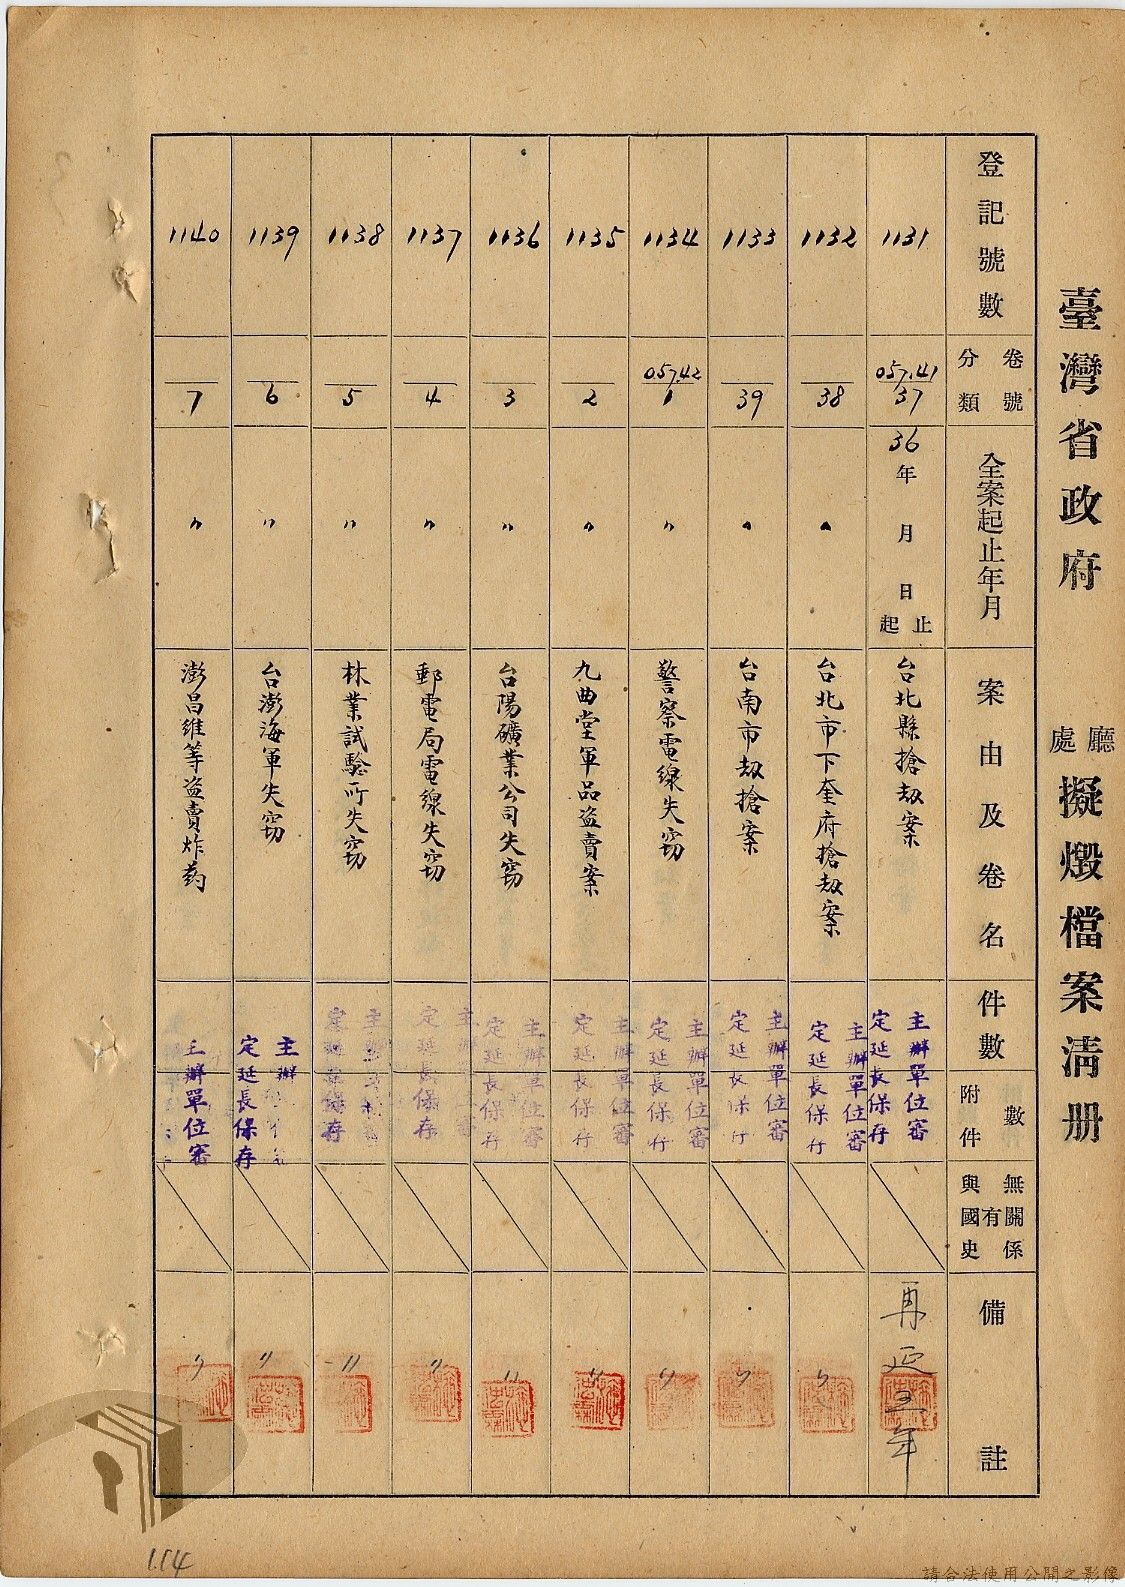 臺灣省政府 廳處 擬燬檔案清册
登記號數
分類卷號
全案起止年月
案由及卷名
件數
附件數
與國史有無關係
備註
1131
057.41
37
36年 月 日起止
台北縣搶刼案
主辦單位審
定延長保存
再延五年
1132
38
〃
台北市下奎府搶刼案
主辦單位審
定延長保存
〃
1133
39
〃
台南市刼搶案
主辦單位審
定延長保存
〃
1134
057.42
1
〃
警察電線失窃
主辦單位審
定延長保存
〃
1135
2
〃
九曲堂軍品盜賣案
主辦單位審
定延長保存
〃
1136
3
〃
台陽礦業公司失窃
主辦單位審
定延長保存
〃
1137
4
〃
郵電局電線失窃
主辦單位審
定延長保存
〃
1138
5
〃
林業試驗所失窃
主辦
定延長保存
〃
1139
6
〃
台澎海軍失窃
主辦
定延長保存
〃
1140
7
〃
澎昌維等盜賣炸药
主辦單位審
〃
114
請合法使用公開之影像